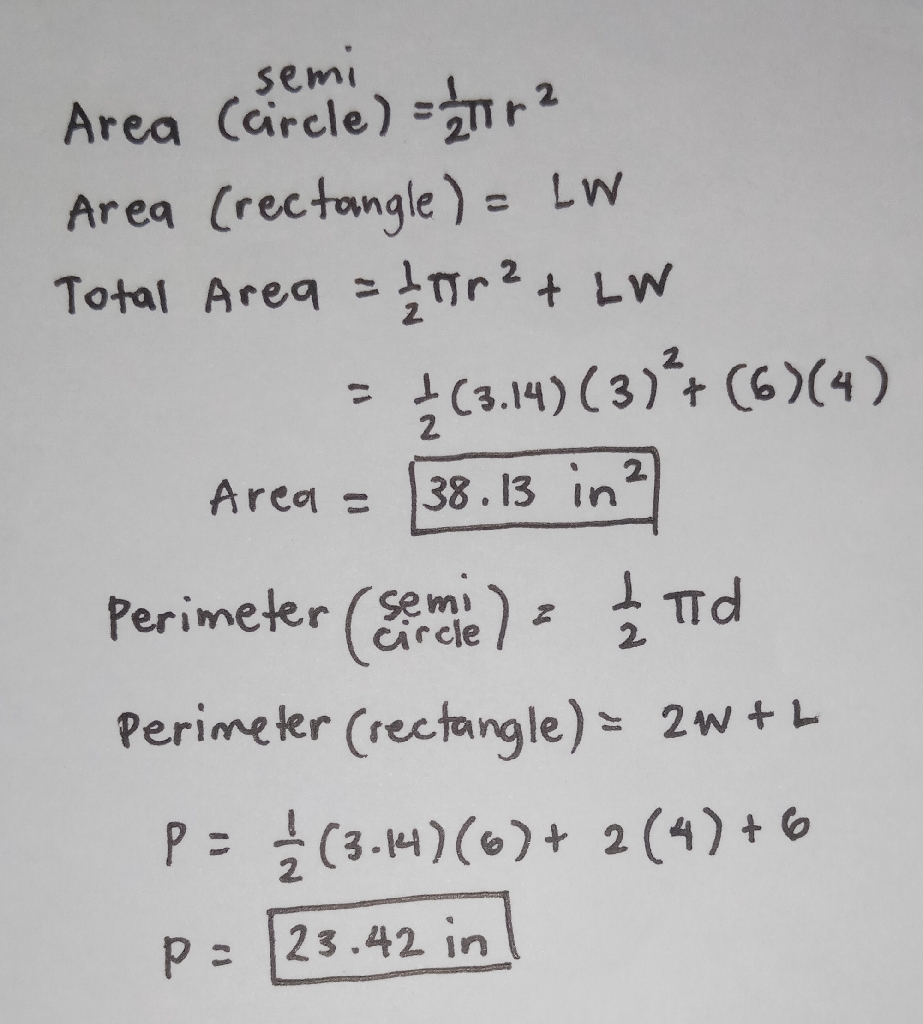 Area (semi circle) = ½πr²
Area (rectangle) = LW
Total Area = ½πr² + LW
= ½(3.14)(3)² + (6)(4)
Area = 38.13 in²
Perimeter (semi circle) = ½ πd
Perimeter (rectangle) = 2W + L
P = ½(3.14)(6) + 2(4) + 6
P = 23.42 in